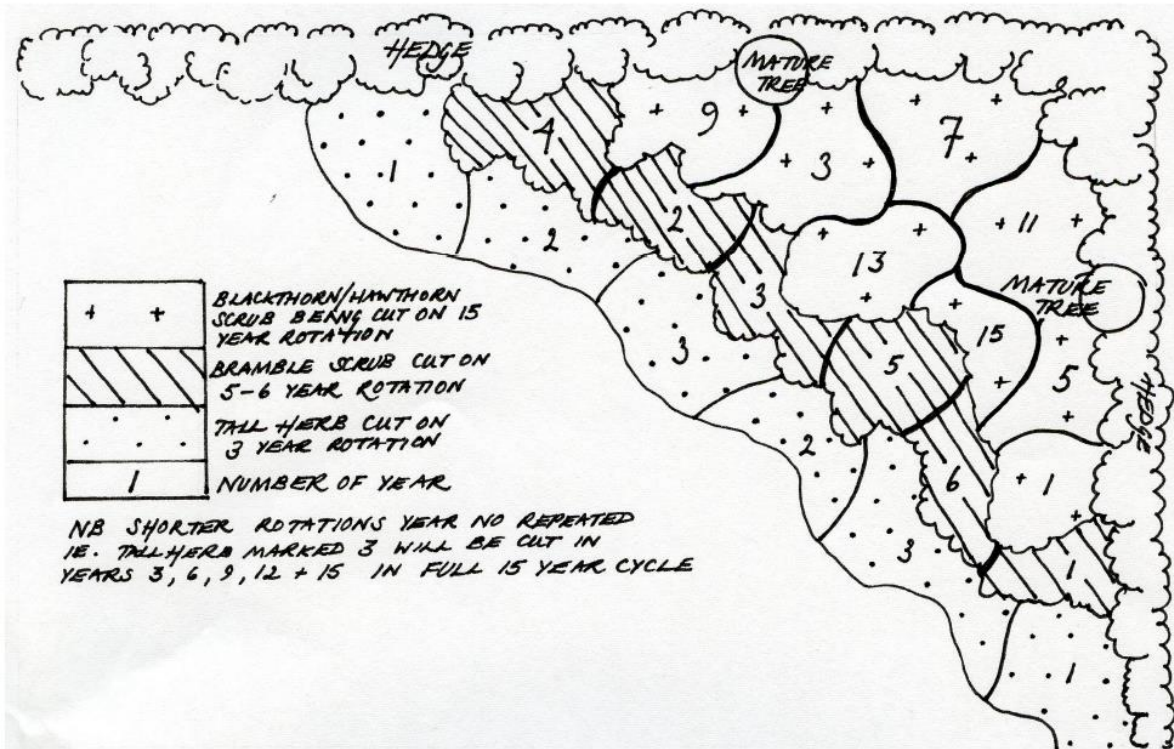 HEDGE
MATURE
TREE
9
4
7
3
1
2
2
11
13
3
MATURE
TREE
15
3
5
5
2
6
1
3
1
1
HEDGE
BLACKTHORN/HAWTHORN
SCRUB BEANG CUT ON 15
YEAR ROTATION
BRAMBLE SCRUB CUT ON
5-6 YEAR ROTATION
TALL HERB CUT ON
3 YEAR ROTATION
1 NUMBER OF YEAR
NB SHORTER ROTATIONS YEAR NO REPEATED
IE. TALL HERB MARKED 3 WILL BE CUT IN
YEARS 3, 6, 9, 12 + 15 IN FULL 15 YEAR CYCLE